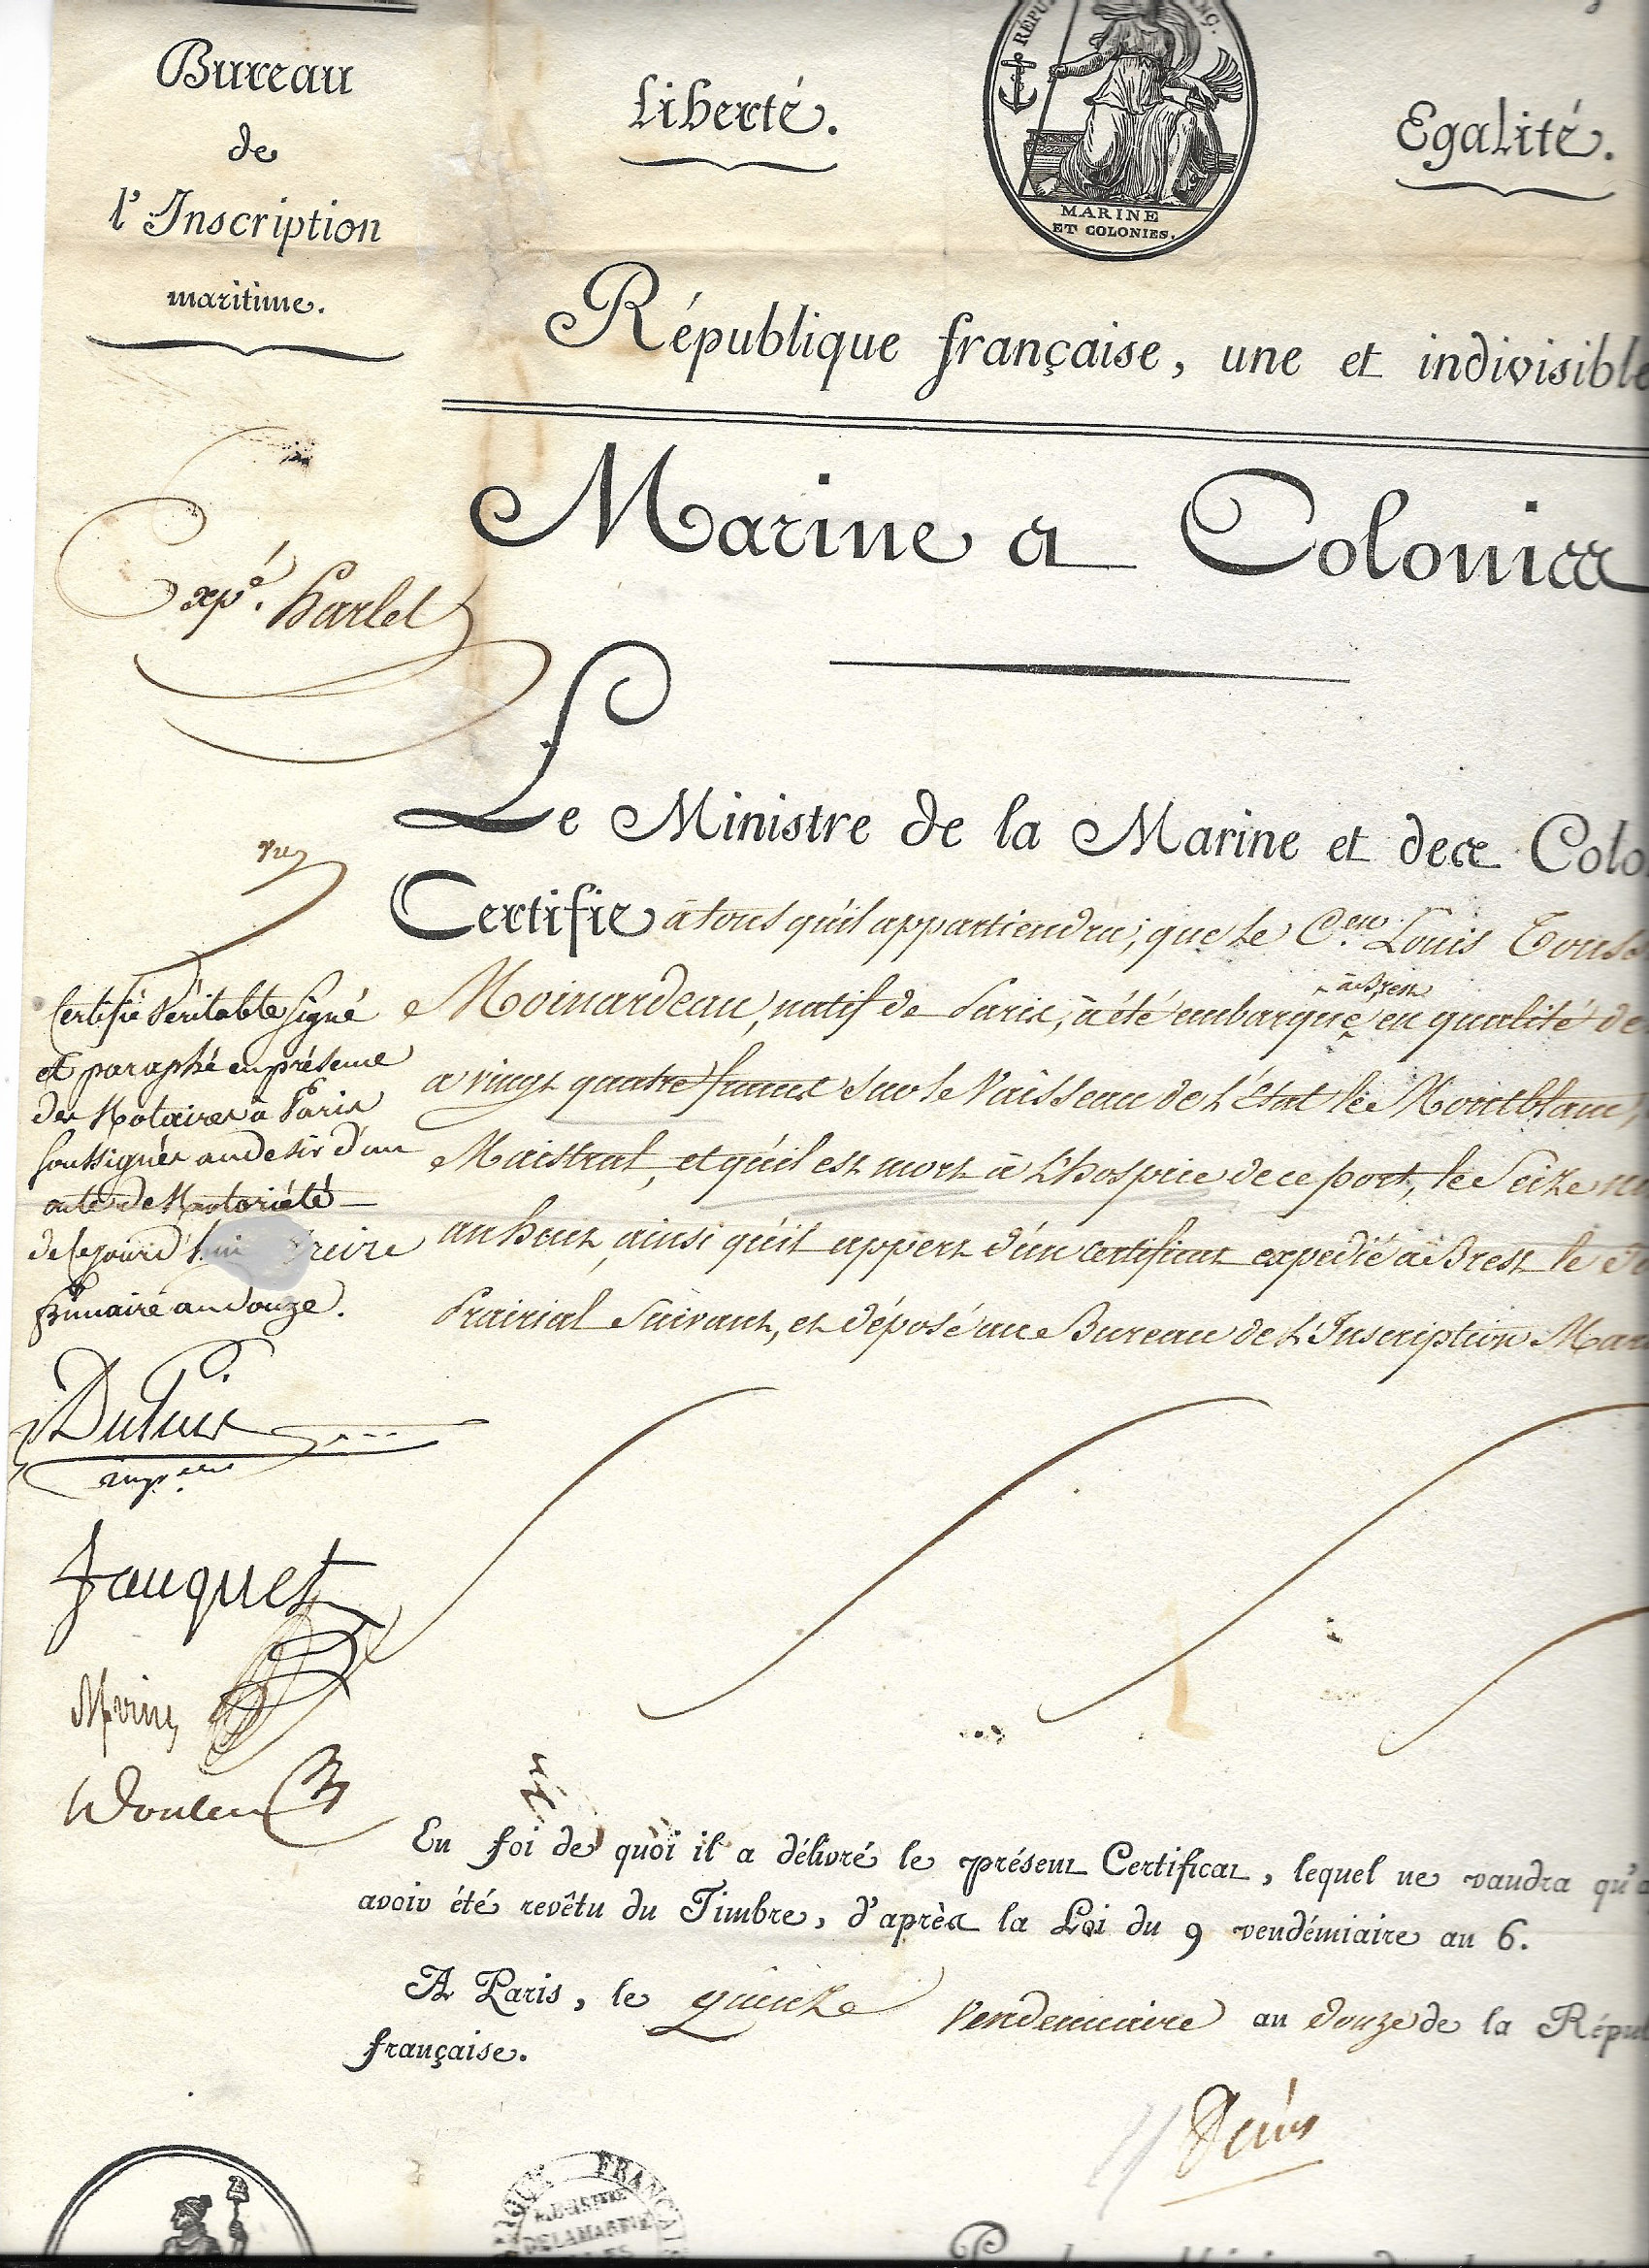 Bureau
de
l'Inscription
maritime.
Liberté.
RÉPU
NÇ.
MARINE
ET COLONIES.
Egalité.
République française, une et indivisible
Marine et Colonies
Expé. harlet
Vu
Le Ministre de la Marine et des Colo
Certifie à tous qu'il appartiendra, que le C.en Louis Touss
Moinardeau, natif de Paris, a été embarqué à Brest en qualité de
à vingt quatre francs sur le Vaisseau de l'État le Montblanc,
Maistral, et qu'il est mort à l'hospice de ce port, le Seize
an huit, ainsi qu'il appert d'un certificat expédié à Brest le
Prairial Suivant, et déposé au Bureau de l'Inscription Mar
Certifié Véritable Signé
et paraphé en présence
des Notaires à Paris
Soussignés au desir d'un
acte de Notoriété
de ce jourd'hui treize
frimaire an douze.
Fauquet
En foi de quoi il a délivré le présent Certificat, lequel ne vaudra qu'a
avoir été revêtu du Timbre, d'après la Loi du 9 vendémiaire an 6.
A Paris, le quinze Vendemiaire an douze de la Répub
française.
FRANÇAI
DE LA MARINE